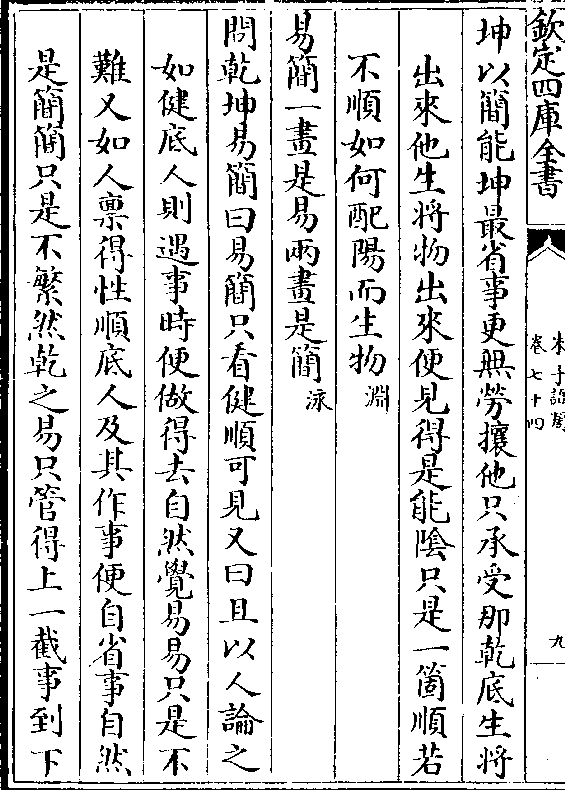 欽定四庫全書
朱子語類
卷七十四
九
坤以簡能坤最省事更無勞攘他只承受那乾底生將
出來他生將物出來便見得是能陰只是一箇順若
不順如何配陽而生物淵
易簡一畫是易兩畫是簡泳
問乾坤易簡曰易簡只看健順可見又曰且以人論之
如健底人則遇事時便做得去自然覺易易只是不
難又如人禀得性順底人及其作事便自省事自然
是簡簡只是不繁然乾之易只管得上一截事到下